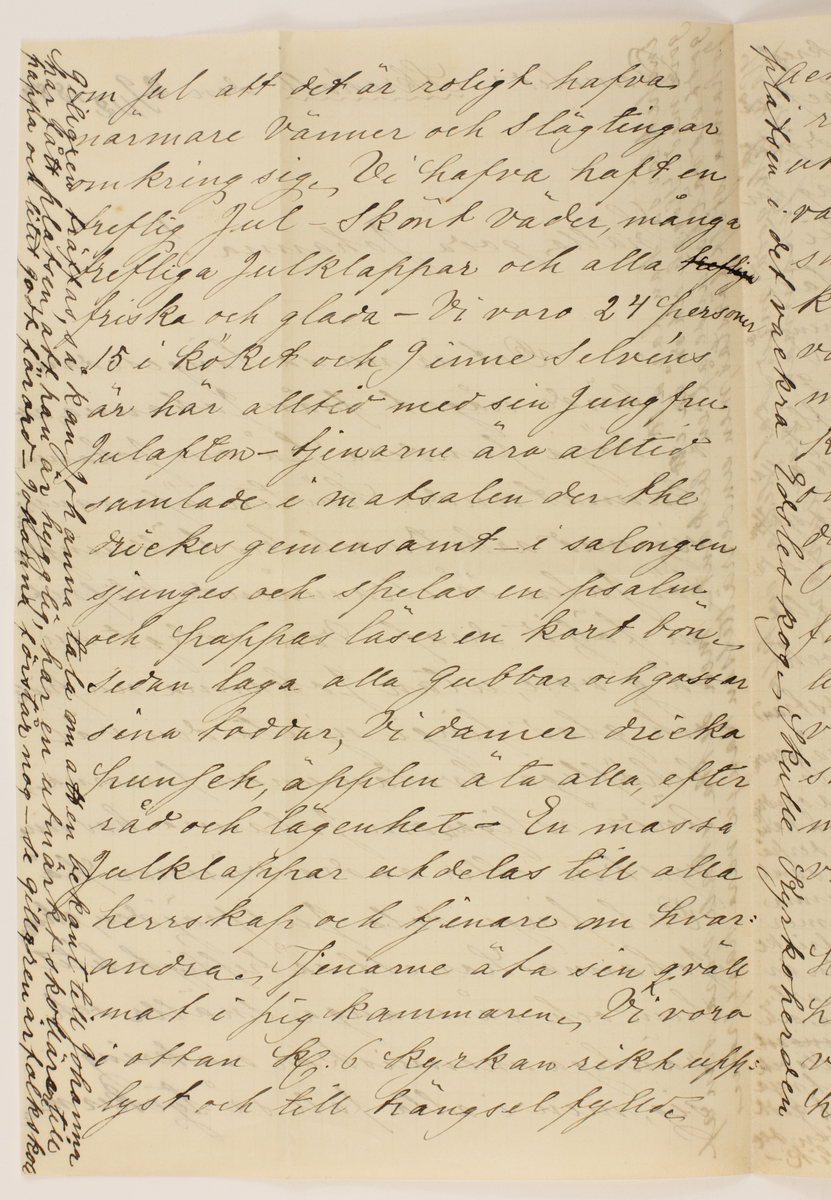 om Jul att det är roligt hafva
närmare vänner och slägtingar
omkring sig. Vi hafva haft en
treflig Jul – skönt väder, många
trefliga Julklappar och alla trefliga
friska och glada – Vi voro 24 personer
15 i köket och 9 inne Selvéns
är här alltid med sin Jungfru
Julafton – tjenarne äro alltid
samlade i matsalen der the
drickes gemensamt – i salongen
sjunges och spelas en psalm
och pappas läser en kort bön.
sedan laga alla Gubbar och gossar
sina toddar, Vi damer dricka
punsch, äpplen äta alla, efter
råd och lägenhet – En massa
Julklappar utdelas till alla
herrskap och tjenare om hvar:
andra. Tjenarne äta sin qväll
mat i pigkammaren. Vi voro
i ottan Kl. 6 kyrkan rikt upp:
lyst och till trängsel fylld.
träffas, så kan Johanna tala om att en bekant till Johanna
har fått platsen, att han är hygglig, har en utmärkt skollärare till
pappa och litet godt förord – Johanna förstår nog – se gillgren är folkskol
platsen i det vackra Edsleskog. Skulle Kyrkoherden